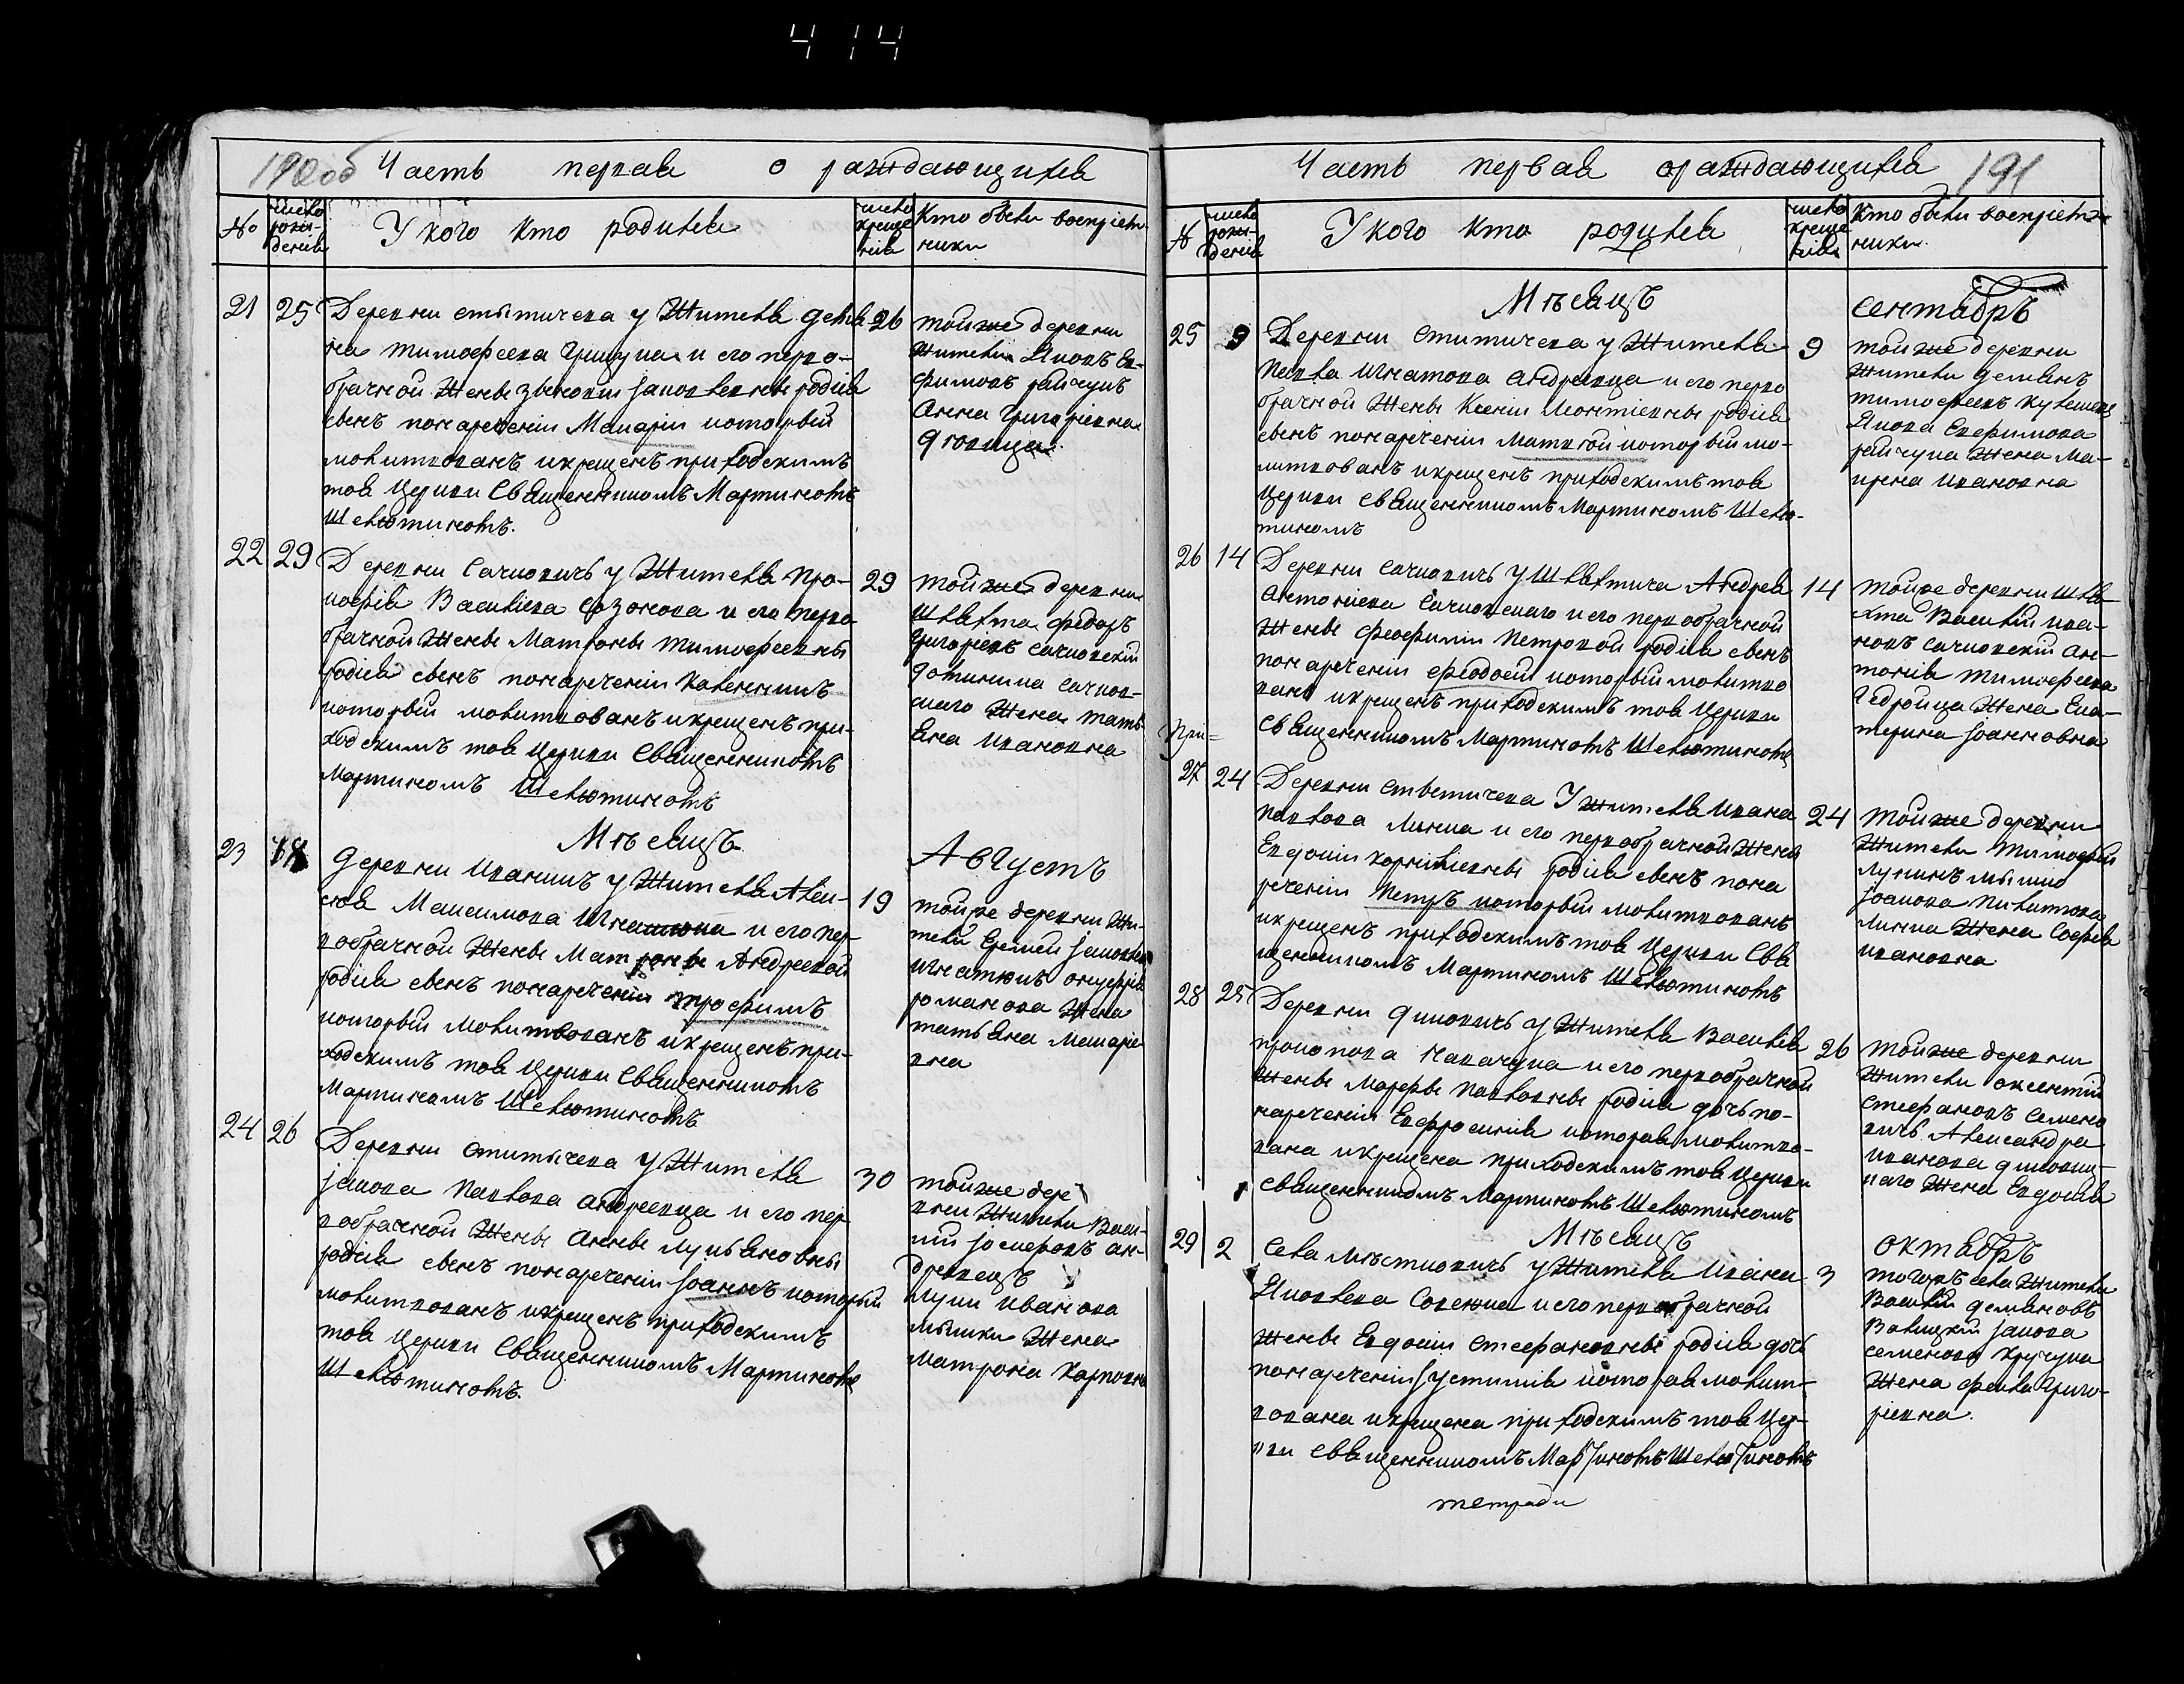 414
190об Часть первая о раждающихся
№
число рождения
У кого кто родился
число крещения
Кто были воспріемники
21
25
Деревни стытичева у Жителя Демя
на тимофеева Грицука и его перво-
брачной Женѣ Зѣновіи Іаковлевнѣ родился
сынъ понареченіи Макарій который
молитвованъ икрещенъ приходскимъ
тоя Церкви Священникомъ Мартиномъ
Шелютиномъ.
26
тойже деревни
Жители Яковъ Ев-
фимовъ райчукъ
Анна Григоріевна
дѣвица
22
29
Деревни Сачковичь у Жителя Про-
кофія Васильева Созонова и его перво
брачной Женѣ Матронѣ тимофеевны
родился сынъ понареченіи Каленникъ
который молитвованъ икрещенъ при-
ходскимъ тоя Церкви Священникомъ
Мартиномъ Шелютиномъ
29
тойже деревни
Шляхта федоръ
Григоріевъ Сачковскій
Доминика Сачков-
скаго Жена тать
яна Ивановна
Мѣсяцъ
Августъ
23
18
Деревни Иваникъ у Жителя Алек-
сея Максимова Игнатюка и его пер-
вобрачной Женѣ Матронѣ Андреевой
родился сынъ понареченіи трофимъ
который молитвованъ икрещенъ при-
ходскимъ тоя Церкви Священникомъ
Мартиномъ Шелютиномъ
19
тойже деревни Жи-
тели Еремей Іаковлев
Игнатюкъ онуфрія
романова Жена
татьяна Макаре-
вна
24
26
Деревни стытычева у Жителя
Іакова Павлова Андреевца и его пер
вобрачной Женѣ Аннѣ лукьяновны
родился сынъ понареченіи Іоаннъ который
молитвованъ икрещенъ приходскимъ
тоя Церкви Священникомъ Мартиномъ
Шелютиномъ.
30
тойже дере
вни Жители Васи-
лій Іосифовъ ан-
дреевецъ
луки Иванова
мышки Жена
матрона Карповна
Часть первая ораждающихся 191
№
число рождения
У кого кто родился
число крещения
кто были воспріемники
Мѣсяцъ
сентябръ
25
9
Деревни Стытичева у Жителя
Павла Игнатова андреевца и его перво
брачной Женѣ Ксеніи Леонтіевнѣ родился
сынъ понареченіи Матвей который мо-
литвованъ икрещенъ приходскимъ тоя
Церкви Священникомъ Мартиномъ Шелю-
тиномъ
9
тойже деревни
Жители Демянъ
тимофеевъ кулешецъ
Якова Евфимова
райчука Жена Ма-
рина Ивановна
26
14
Деревни Сачковичь у Шляхтича Андрея
Антоніева Сачковскаго и его первобрачной
Женѣ Феофиліи Петровой родился сынъ
понареченіи феодосій который молитво
ванъ икрещенъ приходскимъ тоя Церкви
Священникомъ Мартиномъ Шелютиномъ
14
тойже деревни шля
хта Василій ива-
новъ Сачковскій ан-
тонія тимофеева
Гедройца Жена Ека-
терина Іоанновна
При=
27
24
Деревни Стытичева У Жителя Ивана
Павлова Линика и его первобрачной Женѣ
Евдокіи Корниліевнѣ родился сынъ пона
реченіи Петръ который молитвованъ
икрещенъ приходскимъ тоя Церкви Свя
щенникомъ Мартиномъ Шелютиномъ
24
тойже деревни
Жители тимофей
лукинъ мышко
Іоакова никитова
Линика Жена Софія
ивановна
28
25
Деревни диковичь у Жителя Василія
прокопова Макачука и его первобрачной
Женѣ Марфѣ Павловнѣ родилась дочь по-
нареченіи Ефросинія которая молитво-
вана икрещена приходскимъ тоя Церкви
священникомъ Мартиномъ Шелютиномъ
26
тойже деревни
Жители оксентій
Стефановъ Семено
вичь Александра
иванова дикович-
каго Жена Евдокія
Мѣсяцъ
октябръ
29
2
Села мѣстковичь у Жителя Ивана
Яковлева Совенка и его первобрачной
Женѣ Евдокіи Стефановнѣ родилась дочь
понареченіи Іустинія которая молит-
вована икрещена приходскимъ тоя Цер-
кви Священникомъ Мартиномъ Шелютиномъ
3
тогожъ села Жители
Василій демяновъ
Волицкій Іакова
семенова Кручука
Жена фекла Григо-
ріевна.
тетради